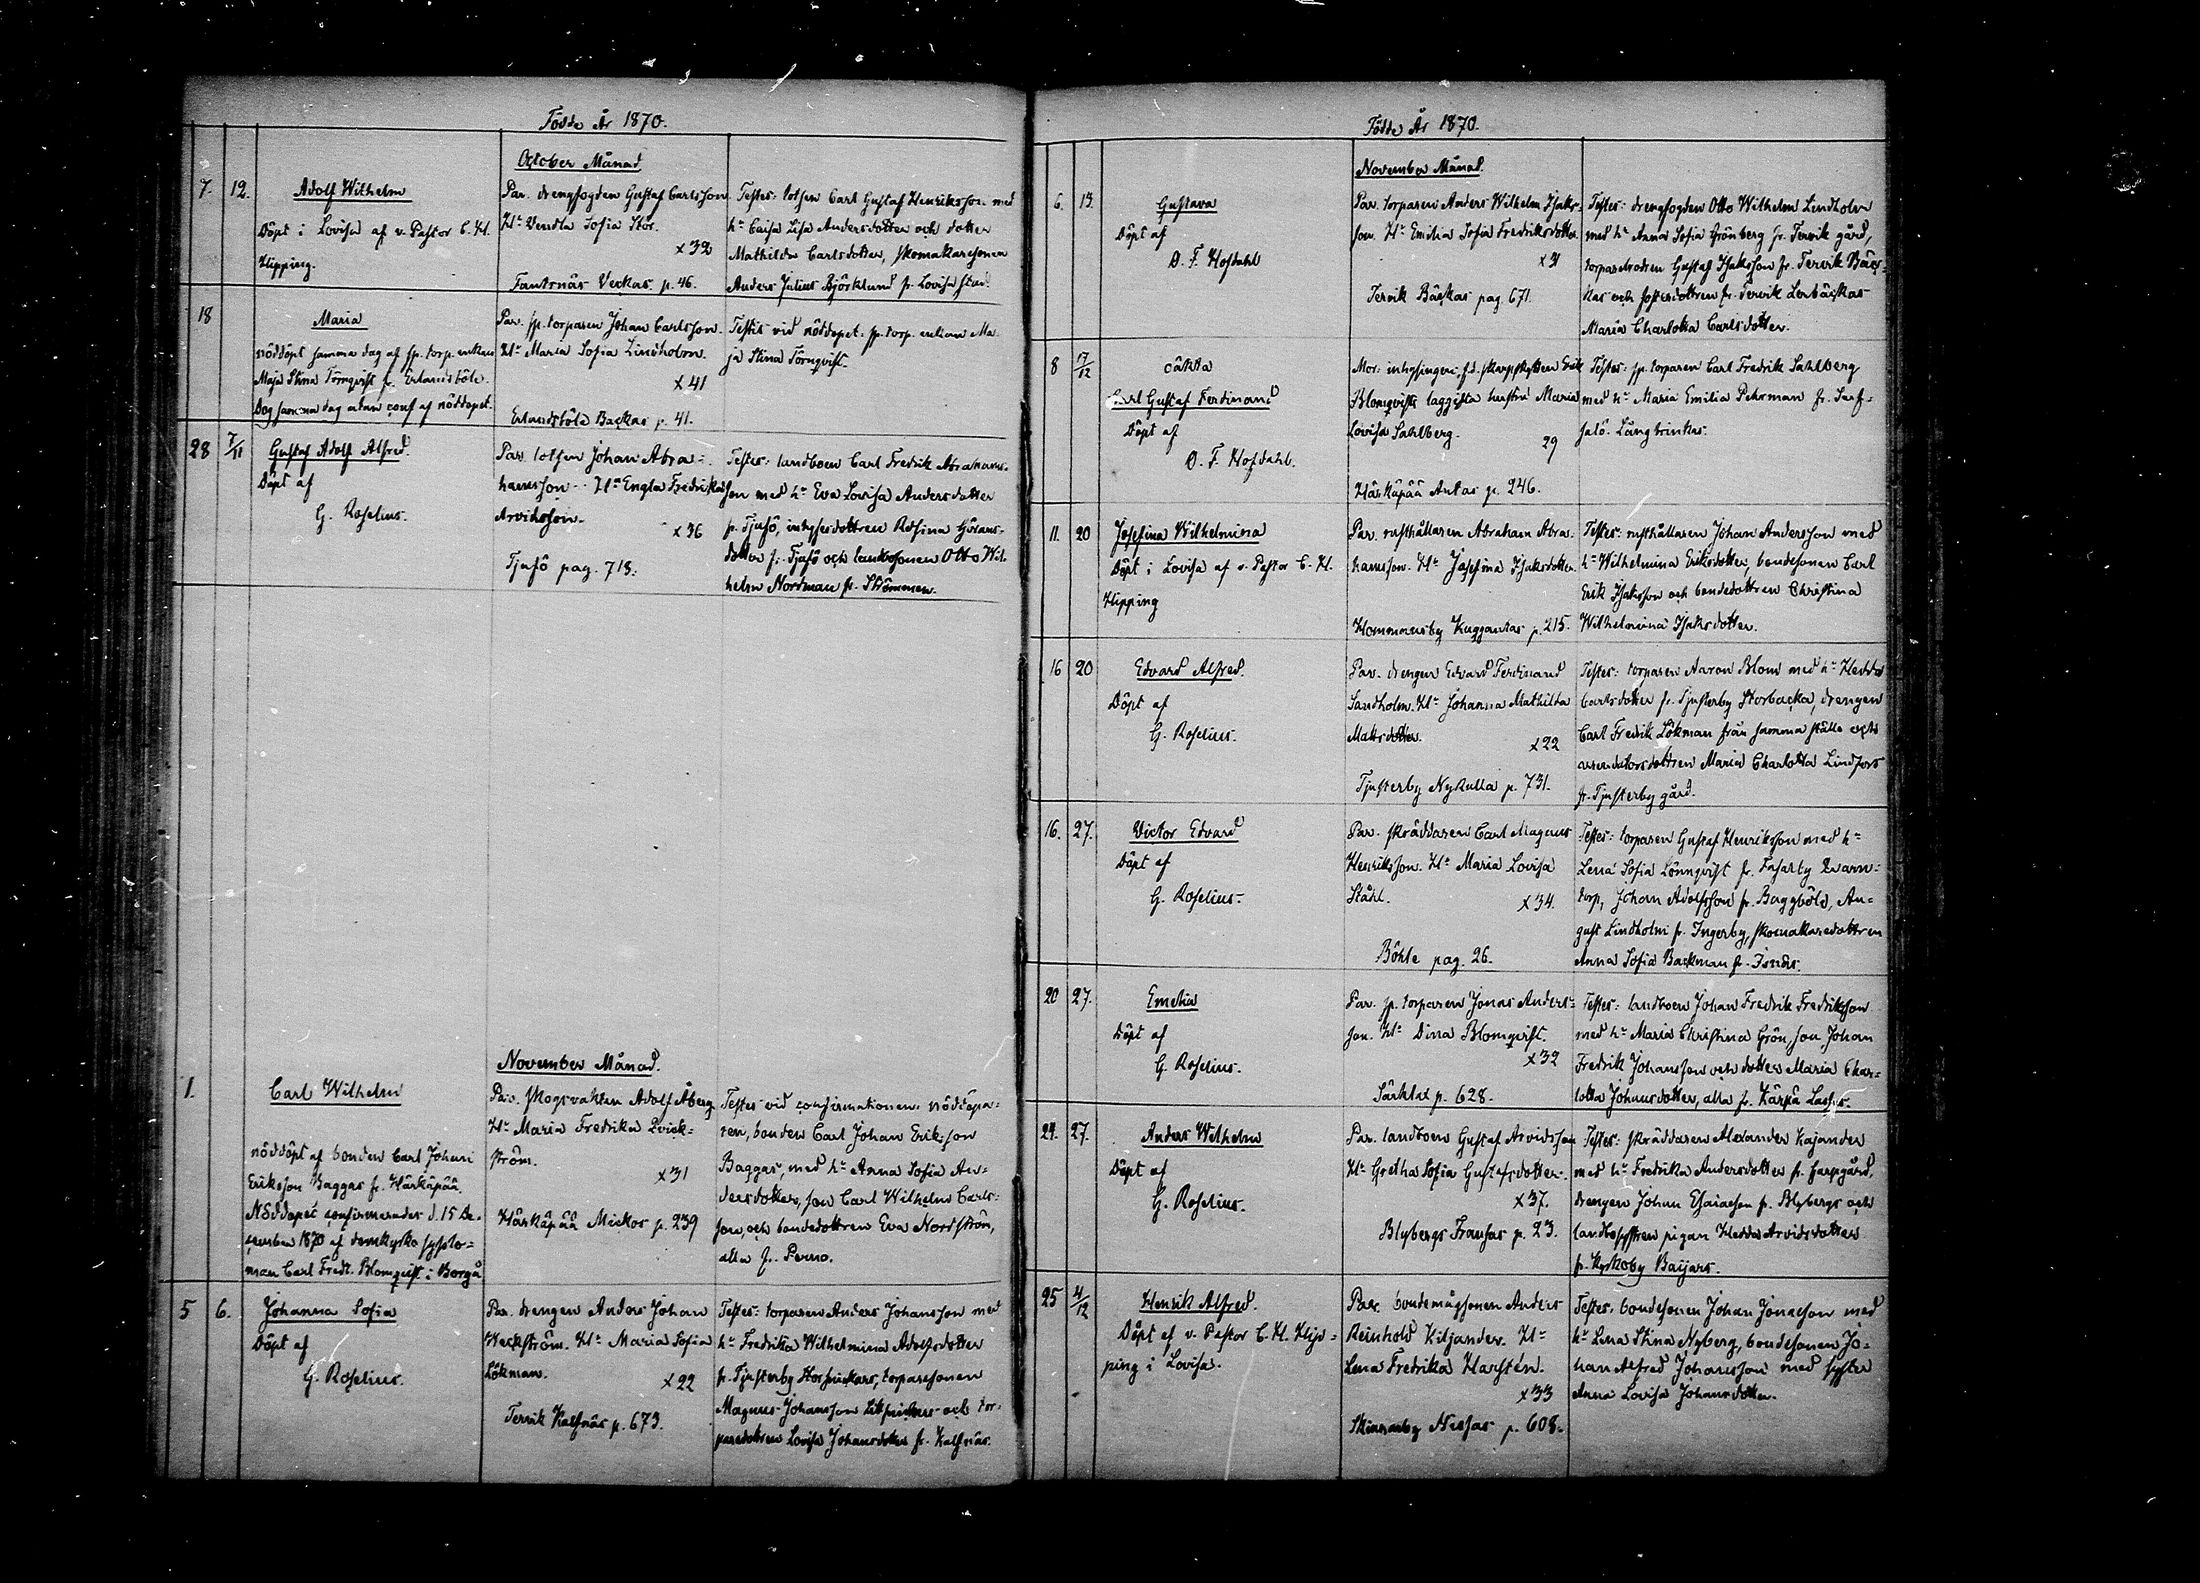 Födde År 1870.
October Månad
7. 12. Adolf Wilhelm
Döpt i Lovisa af v. Pastor C. H.
Klipping.
Par. drengfogden Gustaf Carlsson
H:u Vendla Sofia Stör.
x 32
Fantsnäs Veckas. p. 46.
Testes: lotsen Carl Gustaf Henriksson med
h:u Caisa Lisa Andersdotter och dotter
Mathilda Carlsdotter, skomakaresonen
Anders Julius Björklund fr. Lovisa stad.
18 Maria
nöddöpt samma dag af sp. torp. enkan
Maja Stina Törnqvist fr. Erlandsböle.
Dog samma dag utan conf. af nöddopet.
Par. sp. torparen Johan Carlsson.
H:u Maria Sofia Lindholm.
x 41
Erlandsböle Backas p. 41.
Testes vid nöddopet: sp. torp. enkan Ma-
ja Stina Törnqvist.
28 7/11 Gustaf Adolf Alfred.
Döpt af
G. Roselius.
Par. lotsen Johan Abra-
hamsson. H:u Engla Fredrika
Arvidsson.
x 36
Tjusö pag. 718.
Testes: landboen Carl Fredrik Abrahams-
son med h:u Eva Lovisa Andersdotter
fr. Tjusö, inhysesdottren Rosina Görans-
dotter fr. Tjusö och landbosonen Otto Wil-
helm Nordman fr. Strömmen.
November Månad.
1. Carl Wilhelm
nöddöpt af bonden Carl Johan
Eriksson Baggas fr. Härkäpää.
Nöddopet confirmerades d. 15 De-
cember 1870 af domkyrko syslo-
man Carl Fredr. Blomqvist i Borgå
Par. skogsvakten Adolf Åberg
H:u Maria Fredrika Qvick-
ström.
x 31
Härkäpää Mickos p. 239
Testes vid confirmationen: nöddöpa-
ren, bonden Carl Johan Eriksson
Baggas, med h:u Anna Sofia An-
dersdotter, son Carl Wilhelm Carls-
son, och bondedottren Eva Nordström,
alla fr. Perno.
5 6. Johanna Sofia
Döpt af
G. Roselius.
Par. drengen Anders Johan
Weckström. H:u Maria Sofia
Lökman.
x 22
Tervik Kalfnäs p. 673.
Testes: torparen Anders Johansson med
h:u Fredrika Wilhelmina Adolfsdotter
fr. Tjusterby Storsnickars, torparesonen
Magnus Johansson och tor-
paredottren Lovisa Johansdotter fr. Kalfnäs.
Födde År 1870.
November Månad.
6. 13. Gustava
Döpt af
O. F. Hofdahl
Par. torparen Anders Wilhelm Isaks-
son. H:u Emilia Sofia Fredriksdotter
x 31
Tervik Bäckas pag. 671.
Testes: drengfogden Otto Wilhelm Lindholm
med h:u Anna Sofia Grönberg fr. Tervik gård,
torpardrodren Gustaf Isaksson fr. Tervik Bäc-
kas och fosterdottren fr. Tervik Lerbäckas
Maria Charlotta Carlsdotter.
8 17/12 oäkta
Carl Gustaf Ferdinand
Döpt af
O. F. Hofdahl.
Mor: inhysingen, f.d. skarpskytten Erik
Blomqvists laggifta hustru Maria
Lovisa Sahlberg.
29
Härkäpää Antas p. 246.
Testes: sp. torparen Carl Fredrik Sahlberg
med h:u Maria Emilia Pehrman fr. Sarf-
salö. Långbrinkas.
11. 20 Josefina Wilhelmina
Döpt i Lovisa af v. Pastor C. H.
Klipping
Par. rusthållaren Abraham Abra-
hamsson. H:u Josefina Isaksdotter.
Hommansby Kuggantas p. 215.
Testes: rusthållaren Johan Andersson med
h:u Wilhelmina Eriksdotter, bondesonen Carl
Erik Isaksson och bondedottren Christina
Wilhelmina Isaksdotter.
16 20 Edvard Alfred.
Döpt af
G. Roselius.
Par. drengen Edvard Ferdinand
Sandholm. H:u Johanna Mathilda
Mattsdotter.
x 22
Tjusterby Nykulla p. 731.
Testes: torparen Aaron Blom med h:u Hedda
Carlsdotter fr. Tjusterby Storbacka, drengen
Carl Fredrik Lökman från samma ställe och
arrendatorsdottren Maria Charlotta Lindfors
fr. Tjusterby gård.
16. 27. Victor Edvard
Döpt af
G. Roselius.
Par. skräddaren Carl Magnus
Henriksson. H:u Maria Lovisa
Ståhl.
x 34.
Böhle pag. 26.
Testes: torparen Gustaf Henriksson med h:u
Lena Sofia Lönnqvist fr. Fasarby Qvarn-
torp, Johan Adolfsson fr. Baggböle, Au-
gust Lindholm fr. Ingerby, skomakaredottren
Anna Sofia Backman fr. Isnäs.
20 27. Emelia
Döpt af
G. Roselius.
Par. sp. torparen Jonas Anders-
son. H:u Dina Blomqvist.
x 32
Särklax p. 628.
Testes: landboen Johan Fredrik Fredriksson
med h:u Maria Christina Grön, son Johan
Fredrik Johansson och dotter Maria Char-
lotta Johansdotter, alla fr. Kärpä Lasses.
24. 27. Anders Wilhelm
Döpt af
G. Roselius.
Par. landboen Gustaf Arvidsson
H:u Gretha Sofia Gustafsdotter.
x 37.
Blybergs Fransas p. 23.
Testes: skräddaren Alexander Kajander
med h:u Fredrika Andersdotter fr. Jarpgård,
drengen Johan Esaiasson fr. Blybergs och
landbosystren pigan Hedda Arvidsdotter
fr. Kyrkoby Baijars.
25 4/12 Henrik Alfred.
Döpt af v. Pastor C. H. Klip-
ping i Lovisa.
Par. bondemågsonen Anders
Reinhold Kiljander. H:u
Lena Fredrika Harstén.
x 33
Skinnarby Nissas p. 608.
Testes. bondesonen Johan Jonasson med
h:u Lena Stina Nyberg, bondesonen Jo-
han Alfred Johansson med syster
Anna Lovisa Johansdotter.